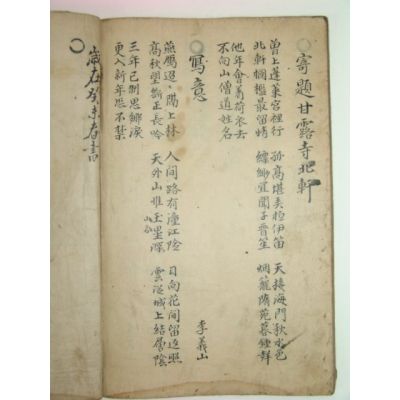 寄題甘露寺北軒
曾上蓬莱宮裡行 孤高堪弄桓伊笛 天接海門秋水色
北軒欄檻最留情 縹緲宜聞子晋笙 烟籠隋苑暮鍾聲
他年會着荷衣去
不向山僧道姓名
寫意
李義山
燕鴈迢〻隔上林 人间路有潼江險 日向花间留返照
高秋望断正長吟 天外山惟玉壘深 雲從城上結層陰
三年已制思鄉淚
更入新年恐不禁
歲在癸未春書